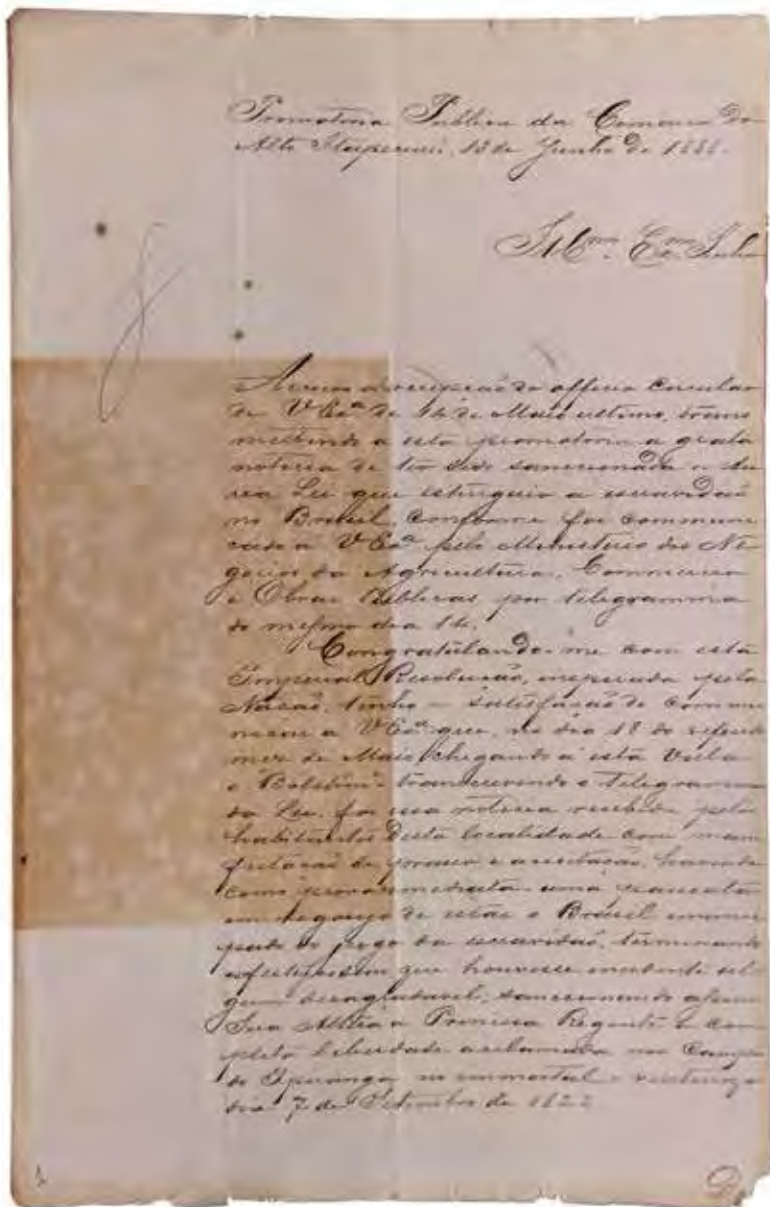 Promotoria Publica da Comarca do
Alto Itapemirim, 13 de Junho de 1888.
Ill.mo Ex.mo Senho
Accuso a recepção do officio circular
de V Ex.a de 14 de Maio ultimo, trans
mettindo a esta promotoria a grata
noticia de ter sido sanccionada a Au
rea Lei que extinguio a escravidão
no Brasil, conforme foi communi
cado a V Ex.a pelo Ministerio dos Ne
gocios da Agricultura, Commercio
e Obras Publicas por telegramma
do mesmo dia 14.
Congratulando-me com esta
Imperial Resolução, inspirada pela
Nação, tenho a satisfação de commu
nicar a V Ex.a que, no dia 18 do referido
mez de Maio, chegando a esta Villa
o Boletim transcrevendo o telegramma
da Lei, foi essa noticia recebida pelos
habitantes desta localidade com mani
festação de e acceitação, havendo
como prova immediata uma passeata
em regosijo de estar o Brasil emanci
pado do jugo da escravidão, terminando
que houvesse incidente al
gum desagradavel, sanccionando assim
Sua Alteza a Princesa Regente a com
pleta liberdade acclamada nos Campos
do Ypiranga no immortal e
dia 7 de Setembro de 1822